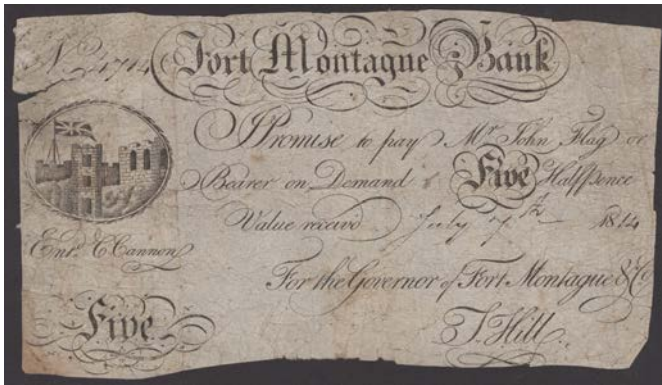 No. 24714 Fort Montague Bank
I Promise to pay Mr. John Flag or
Bearer on Demand Five Halfpence
Value receivd July 7th 1814
Entd. C Cannon
For the Governor of Fort Montague & Co.
Five
T. Hill